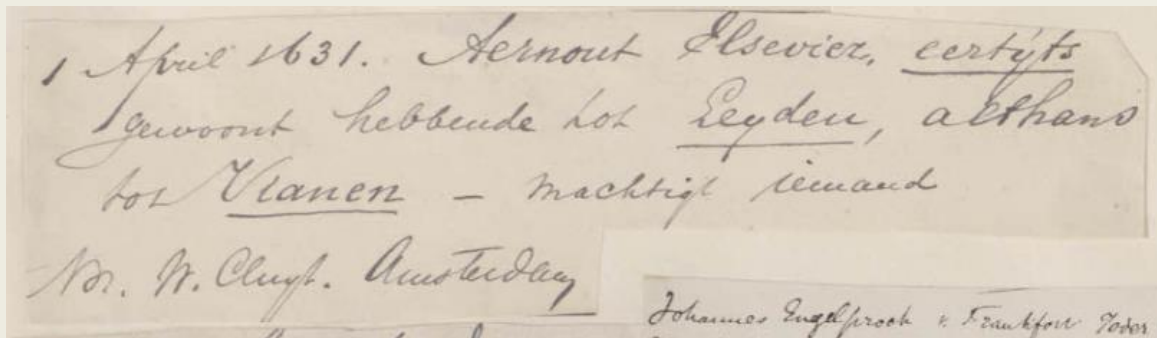 1 April 1631. Aernout Elsevier, eertyts
gewoont hebbende tot Leyden, althans
tot Vianen – machtigt iemand
Not. W. Cluyt. Amsterdam
Johannes Engelsprook v. Frankfort